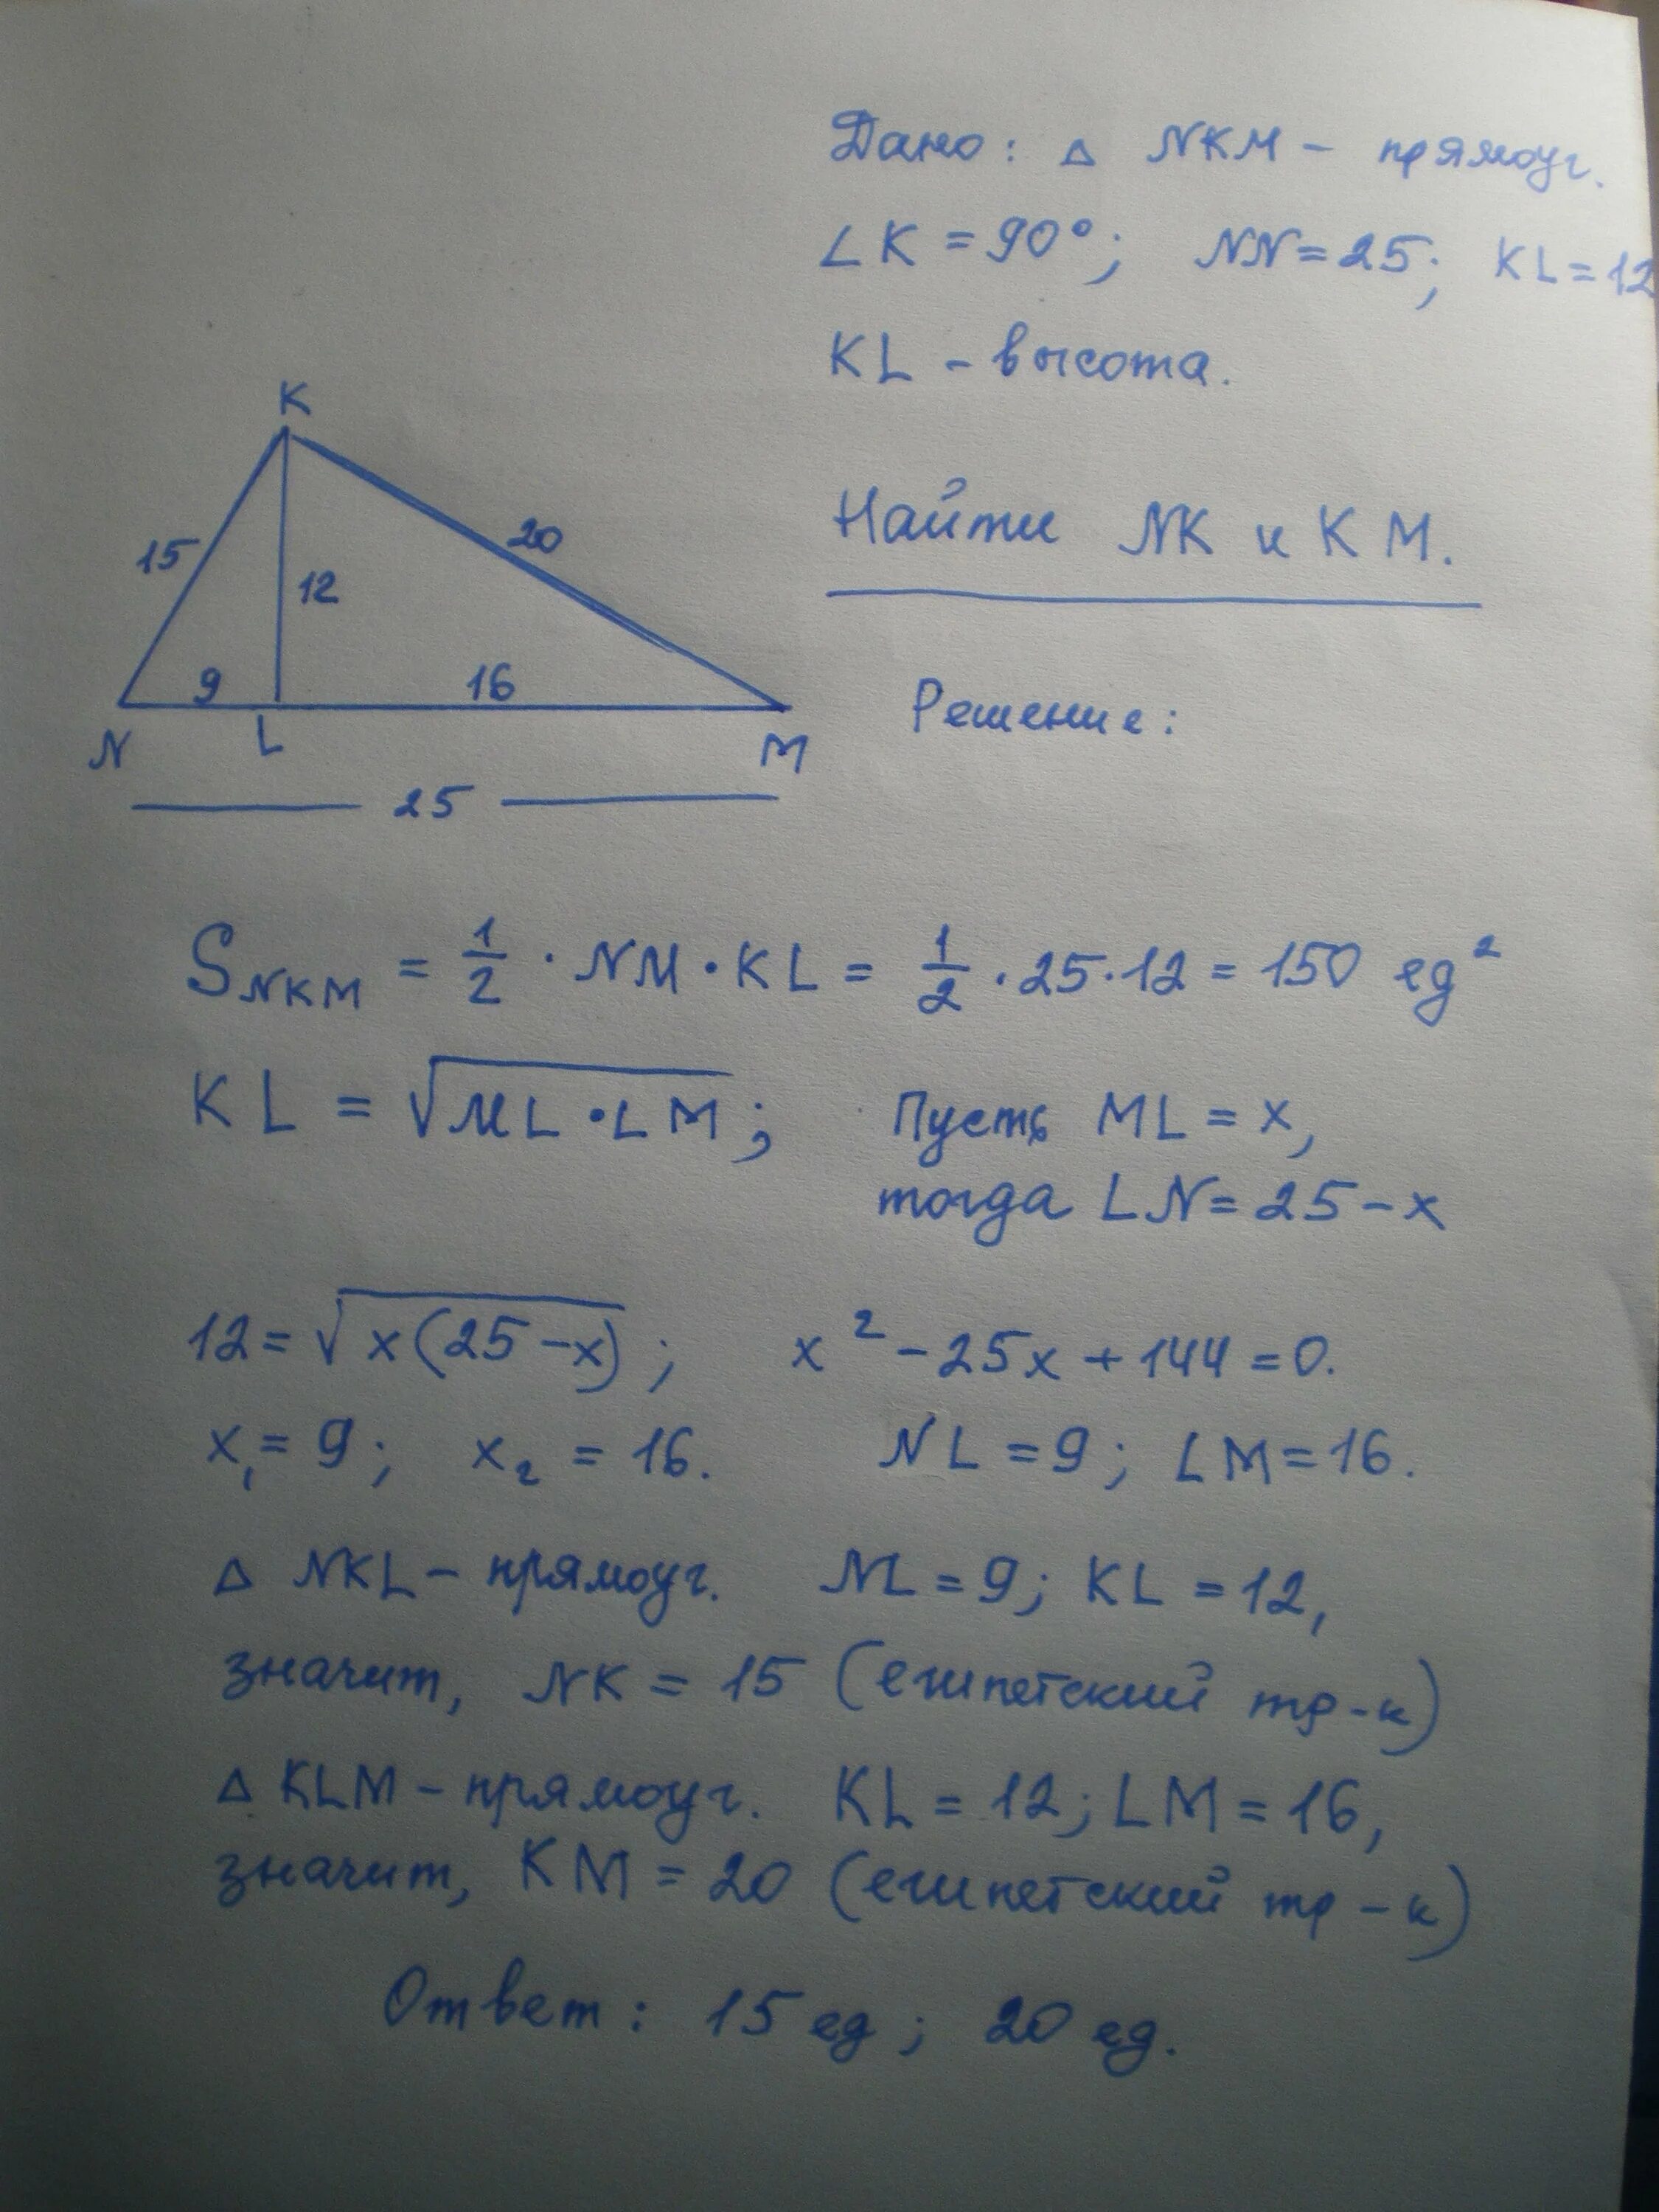 Дано: △ NKM – прямоуг.
∠K = 90°; NN = 25; KL = 12
KL – высота.
K
Найти NK и KM.
15
20
12
9
16
N
L
M
Решение:
25
S NKM = 1/2 · NM · KL = 1/2 · 25 · 12 = 150 ед²
KL = √ML · LM; Пусть ML = x,
тогда LN = 25 – x
12 = √x(25 – x); x² – 25x + 144 = 0.
x₁ = 9; x₂ = 16. NL = 9; LM = 16.
△ NKL – прямоуг. NL = 9; KL = 12,
значит, NK = 15 (египетский тр-к)
△ KLM – прямоуг. KL = 12; LM = 16,
значит, KM = 20 (египетский тр-к)
Ответ: 15 ед; 20 ед.